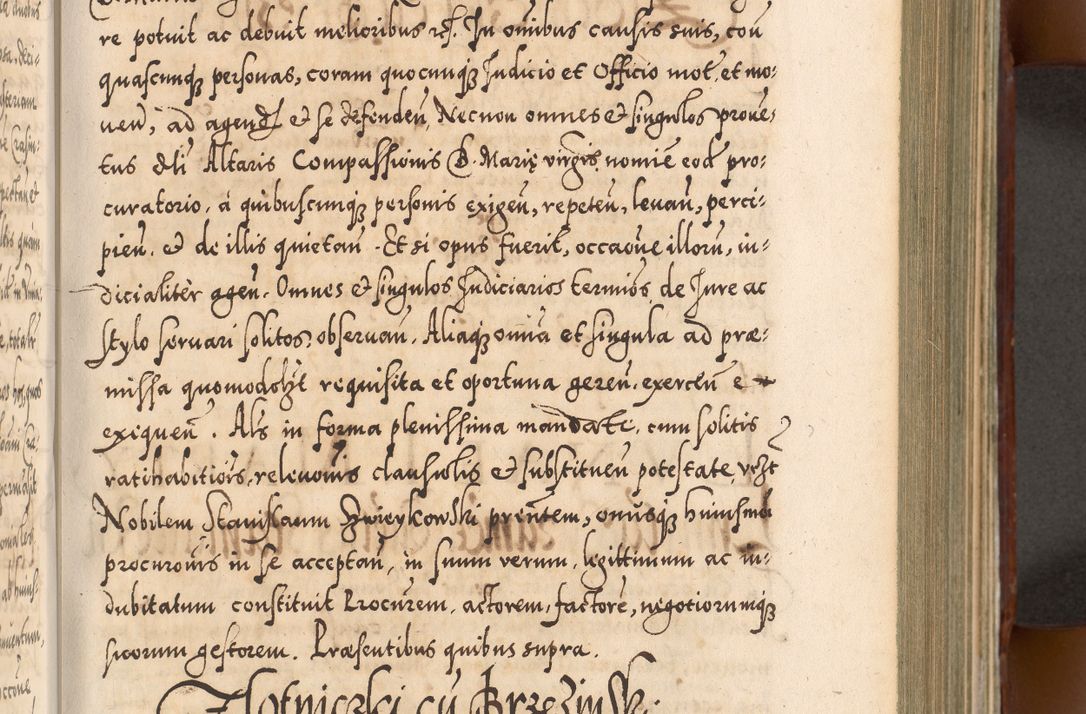 re potuit ac debuit melioribus rś. In oībus causis suis, con
quascunqȝ personas, coram quocunqȝ Judicio et Officio mot. et mo:
ueń, ad agend et se defendeń, Necnon omnes et singulos proue:
tus dti Altaris Compassionis B. Marię virgis, nomīe eod pro:
curatorio, á quibuscunqȝ personis exigeń, repeteń, leuań, perci:
pień. et de illis quietań. Et si opus fuerit, occaōne illoru, in:
dicialiter ageń. Omnes et singulos Judiciarios terminos de Jure ac
Stylo seruari solitos, obseruań. Aliaqȝ omīa et singula ad præ:
missa quomodolȝt requisita et oportuna gereń. exerceń e
exequeń. Als in forma plenissima mandati. cum solitis
ratihabitiōis, releuōnis clausulis et substitueń potestate, vrȝt
Nobilem Stanislaum Zwieykowski prentem, onusqȝ huiusmoi
procurōuis in se acceptań, in suum verum, legittimum ac in:
dubitatum constituit Procurem, actorem, factore, negotiorumqȝ
suorum gestorem. Præsentibus quibus supra.
Zlotniczki cū Brzezinsk: